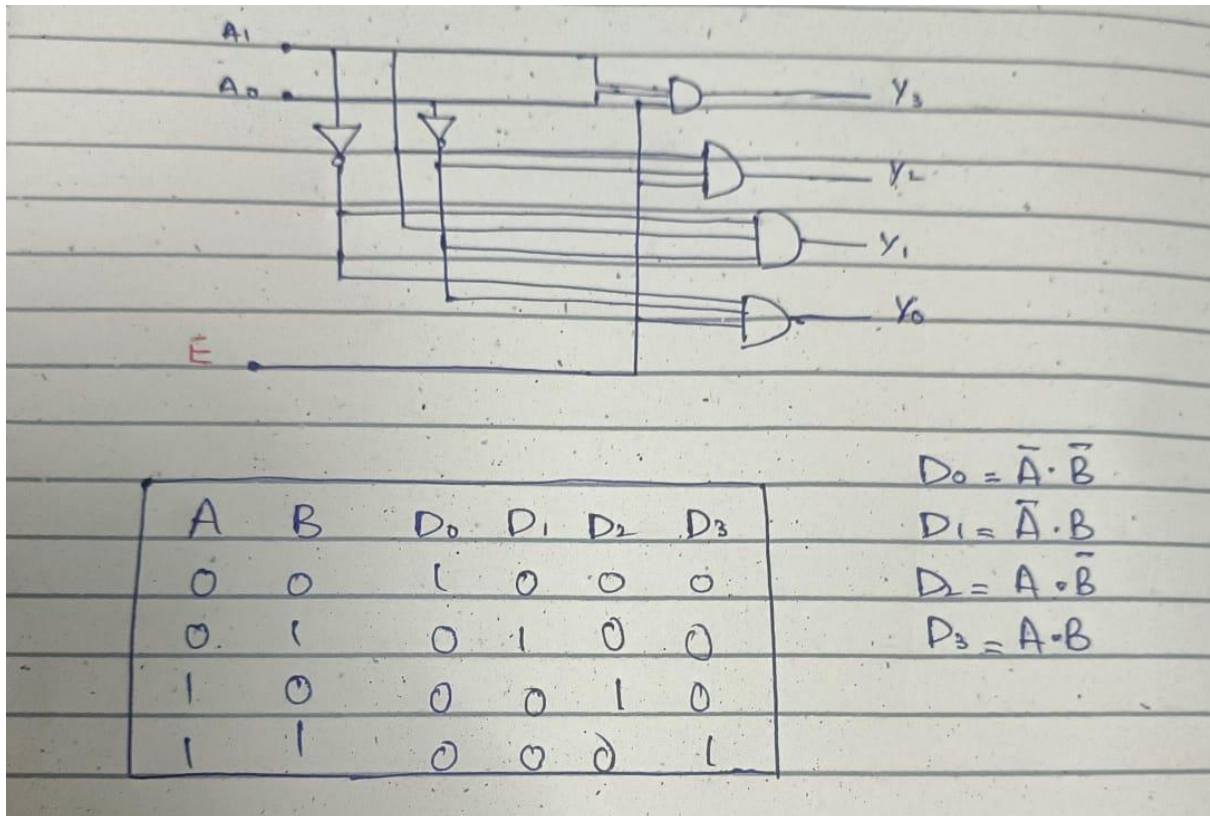 A1
A0
Y3
Y2
Y1
Y0
E
A B D0 D1 D2 D3
0 0 1 0 0 0
0 1 0 1 0 0
1 0 0 0 1 0
1 1 0 0 0 1
D0 = Ā · B̄
D1 = Ā . B
D2 = A . B̄
D3 = A · B